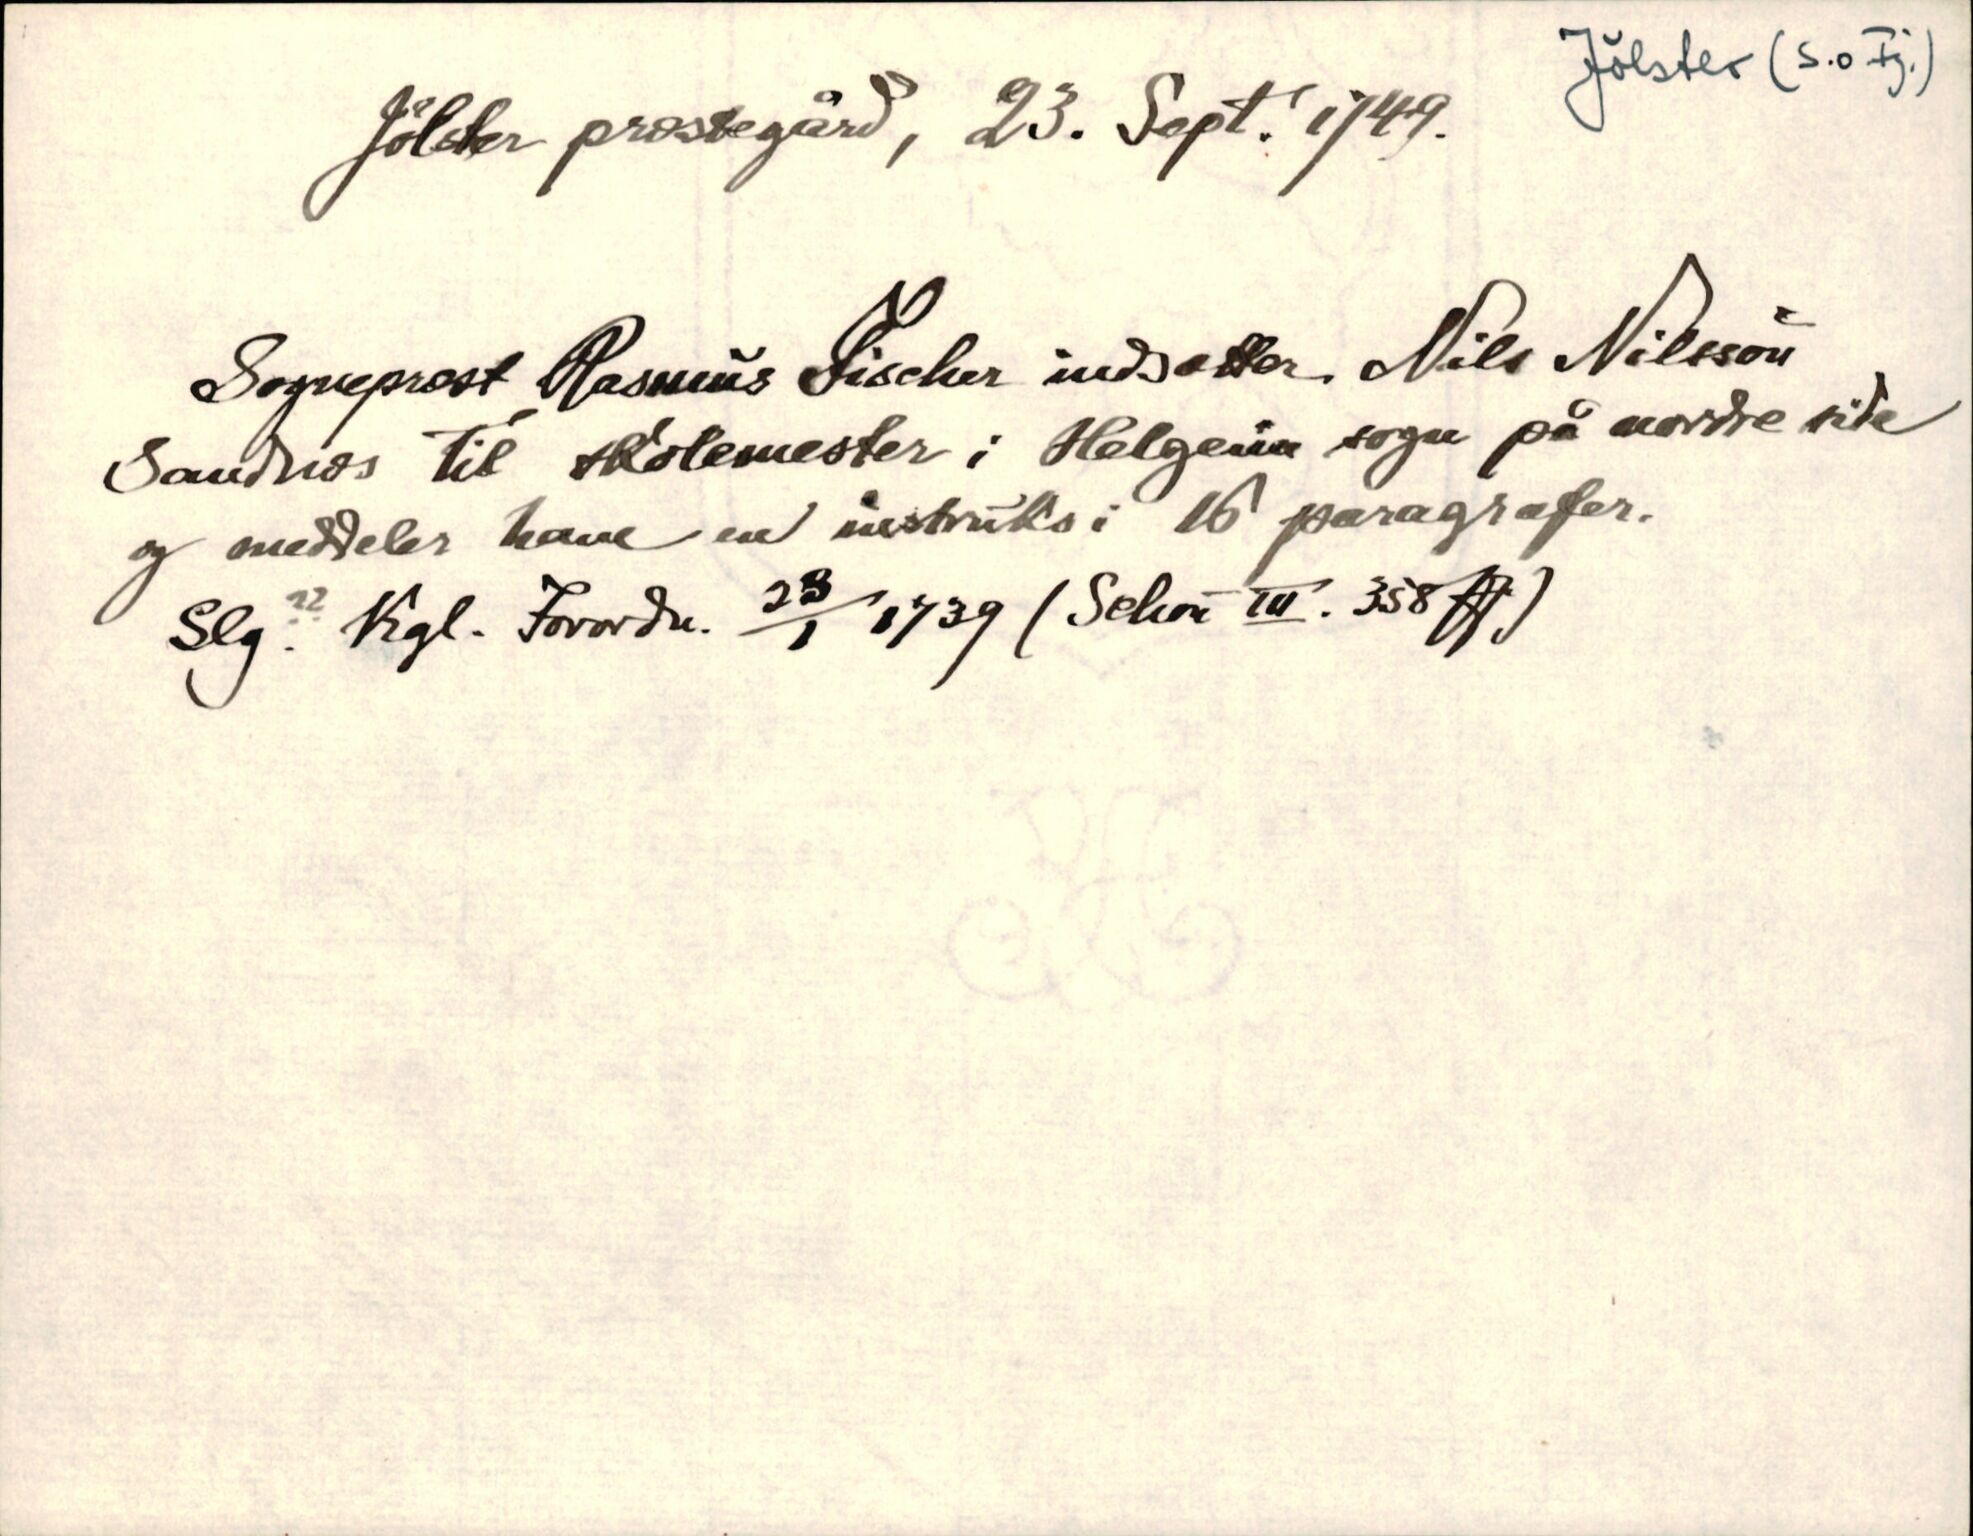 Jölster (S. o Fj.)
Jölster præstegård, 23. Sept. 1749.
Sogneprest Rasmus Fischer indsætter Nils Nilssön
Sandnæs til skolemester i Helgeim sogn på nordre side
og meddeler ham en instruks i 16 paragrafer.
Slg. ?? Kgl. Forordn. 23/1 1739 (Schou III. 358 ff)